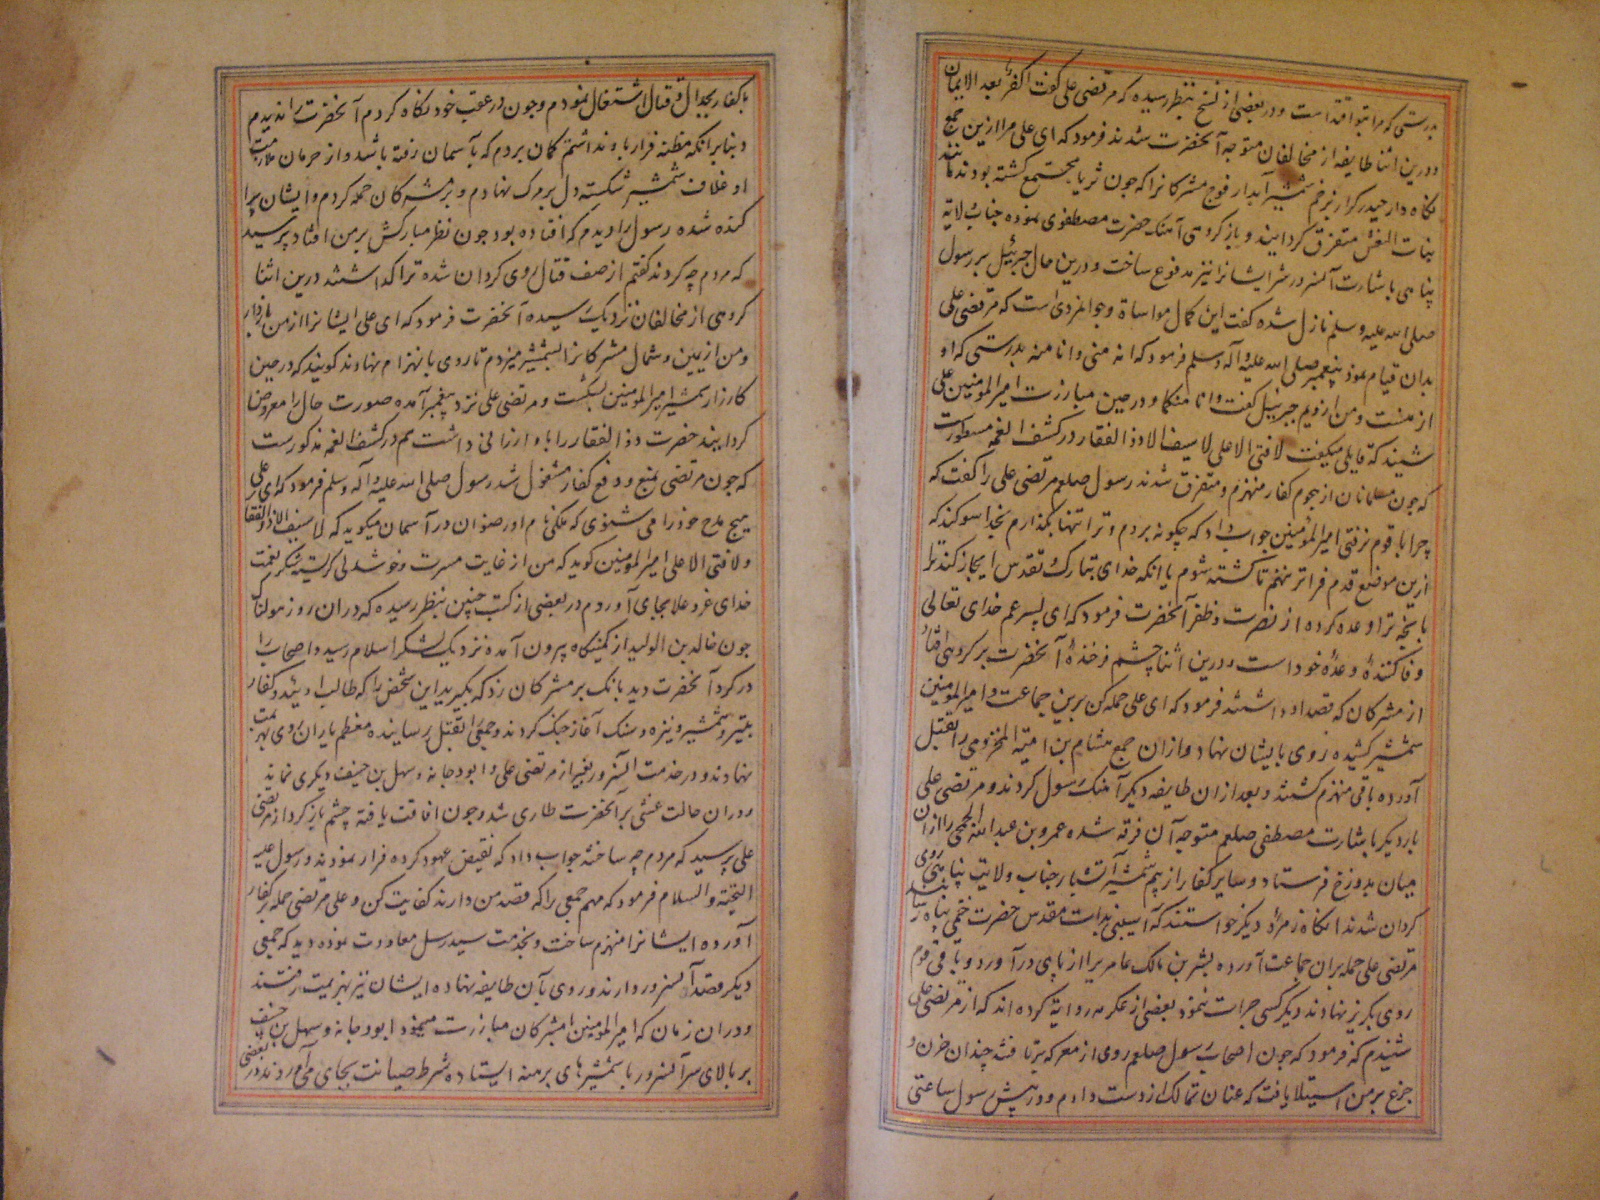 بدرستی که مرا بتو اقتداست و در بعضی از نسخ بنظر رسیده که مرتضی علی گفت اکفر بعد الایمان
و درین اثنا طایفه از مخالفان متوجه آنحضرت شدند فرمود که ای علی مرا ازین جمع
نگاه دار حیدر کرار بزخم شمشیر آبدار فوج مشرکانرا که چون ثریا مجتمع گشته بودند مانند
بنات النعش متفرق گردانید و باز گروهی آهنک حضرت مصطفوی نموده جناب ولایة
پناهی باشارت آنسرور شر ایشانرا نیز مدفوع ساخت و درین حال جبرئیل بر رسول
صلی الله علیه وسلم نازل شده گفت این کمال مواساة و جوانمردی است که مرتضی علی
بدان قیام نمود پیغمبر صلی الله علیه و آله وسلم فرمود که انه منی وانا منه بدرستی که او
از منست و من ازویم جبرئیل گفت وانا منکما و در حین مبارزت امیر المؤمنین علی
شنیدند که قایلی میگفت لافتی الا علی لا سیف الا ذو الفقار در کشف الغمه مسطورست
که چون مسلمانان از هجوم کفار منهزم و متفرق شدند رسول صلعم مرتضی علی را گفت که
چرا با قوم نرفتی امیر المؤمنین جواب داد که چگونه بردم و ترا تنها بگذارم بخدا سوگند که
ازین موضع قدم فراتر ننهم تا کشته شوم یا انکه خدای تبارک و تقدس ایجاز کند مر
بانچه ترا وعده کرده از نصرت و ظفر آنحضرت فرمود که ای پسر عم خدای تعالی
وفا کنندۀ وعدۀ خود است و درین اثنا چشم فرخندۀ آنحضرت بر گروهی افتاد
از مشرکان که قصد او داشتند فرمود که ای علی حمله کن برین جماعت و امیر المؤمنین
شمشیر کشیده روی بایشان نهاد و ازان جمع هشام بن امیة المخزومی را بقتل
آورده باقی منهزم گشتند و بعد ازان طایفه دیگر آهنک رسول کردند و مرتضی علی
بار دیگر باشارت مصطفی صلعم متوجه آن فرقه شده عمرو بن عبد الله الجمحی را ازان
میان بدوزخ فرستاد و سایر کفار از بیم شمشیر آتشبار جناب ولایت پناهی روی
گردان شدند انگاه زمرۀ دیگر خواستند که آسیبی بذات مقدس حضرت ختمی پناه رسانند
مرتضی علی حمله بران جماعت آورده بشر بن مالک عامری را از پای در آورد و باقی قوم
روی بگریز نهادند دیگر کسی جرات ننمود بعضی از عکرمه روایة کرده اند که از مرتضی علی
شنیدم که فرمود که چون اصحاب رسول صلعم روی از معرکه برتافتند چندان حزن و
جزع بر من استیلا یافت که عنان تمالک از دست دادم و در پیش رسول ساعتی
با کفار بجدال و قتال اشتغال نمودم و چون در عقب خود نگاه کردم آنحضرت را ندیدم
و بنابر انکه مظنه فرار باو نداشتم گمان بردم که بآسمان رفته باشد و از حرمان ملازمت
او غلاف شمشیر شکسته دل بر مرک نهادم و بر مشرکان حمله کردم و ایشان پرا
کنده شده رسول را دیدم که افتاده بود چون نظر مبارکش بر من افتاد پرسید
که مردم چه کردند گفتم از صف قتال روی گردان شده ترا گذاشتند درین اثنا
گروهی از مخالفان نزدیک رسیده آنحضرت فرمود که ای علی ایشانرا از من باز دار
و من از یمین و شمال مشرکانرا بشمشیر میزدم تا روی بانهزام نهادند گویند که در حین
کارزار شمشیر امیر المؤمنین بشکست و مرتضی علی نزد پیغمبر آمده صورت حال را معروض
گردانید حضرت ذو الفقار را باو ارزانی داشت هم در کشف الغمه مذکورست
که چون مرتضی بمنع و دفع کفار مشغول شد رسول صلی الله علیه و آله وسلم فرمود که ای علی
هیچ مدح خود را می شنوی که ملکی نام او رضوان در آسمان میگوید که لا سیف الا ذو الفقار
ولا فتی الا علی امیر المؤمنین گوید که من از غایت مسرت و خوشدلی گریسته شکر نعمت
خدای عز و علا بجای آوردم در بعضی از کتب چنین بنظر رسیده که دران روز هولناک
چون خالد بن الولید از کمینگاه بیرون آمده نزدیک لشکر اسلام رسید و اصحاب را
در گرد آنحضرت دید بانک بر مشرکان زد که بگیرید این شخص را که طالب اویند و کفار
بتیر و شمشیر و نیزه و سنک آغاز جنک کردند و جمعی را بقتل رسانیده معظم یاران روی بهزیمت
نهادند و در خدمت آنسرور بغیر از مرتضی علی و ابو دجانه و سهل بن حنیف دیگری نماند
و دران حالت غشی بر آنحضرت طاری شد و چون افاقت یافته چشم باز کرد از مرتضی
علی پرسید که مردم چه ساختند جواب داد که نقیض عهود کرده فرار نمودند و رسول علیه
التحیة والسلام فرمود که مهم جمعی را که قصد من دارند کفایت کن و علی مرتضی حمله بر کفار
آورده ایشانرا منهزم ساخت و بخدمت سید رسل معاودت نموده دید که جمعی
دیگر قصد آنسرور دارند و روی بآن طایفه نهاده ایشان نیز بهزیمت رفتند
و دران زمان که امیر المؤمنین با مشرکان مبارزت مینمود ابو دجانه و سهل بن حنیف
بر بالای سر آنسرور با شمشیرهای برهنه ایستاده شرط صیانت بجای می آوردند و در بعضی